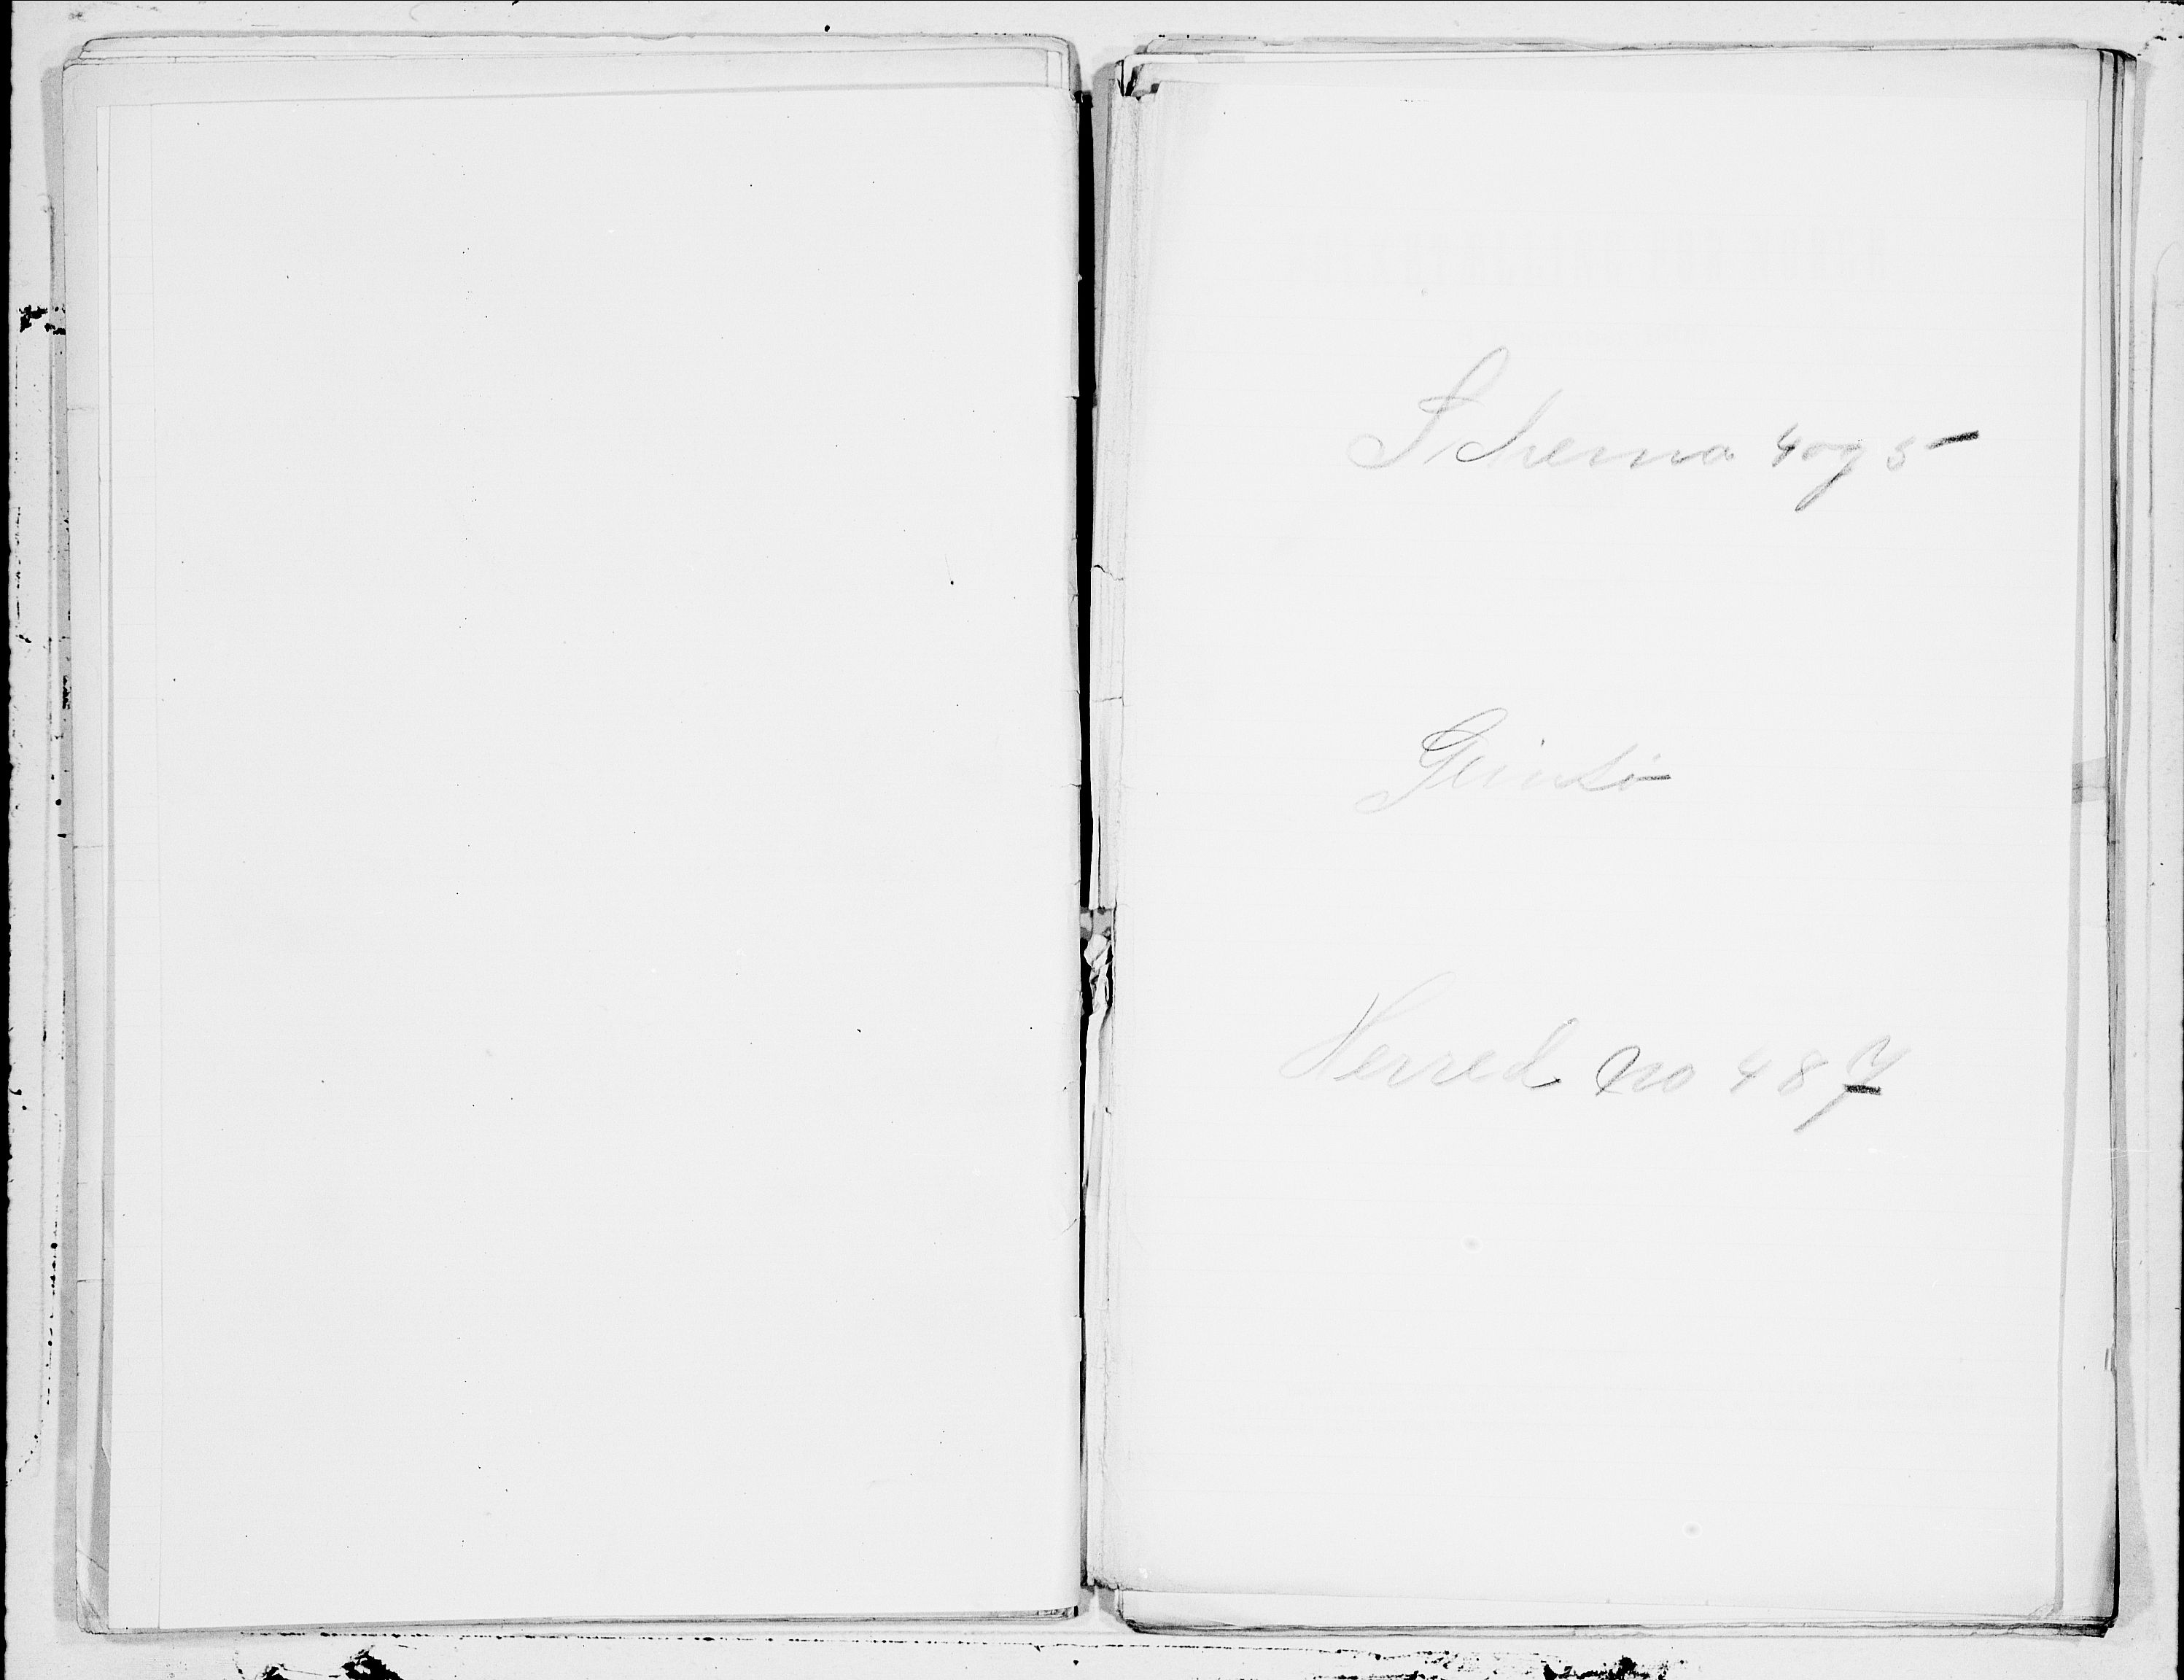 Schema 4 og 5
Gimsø
Herred no 487